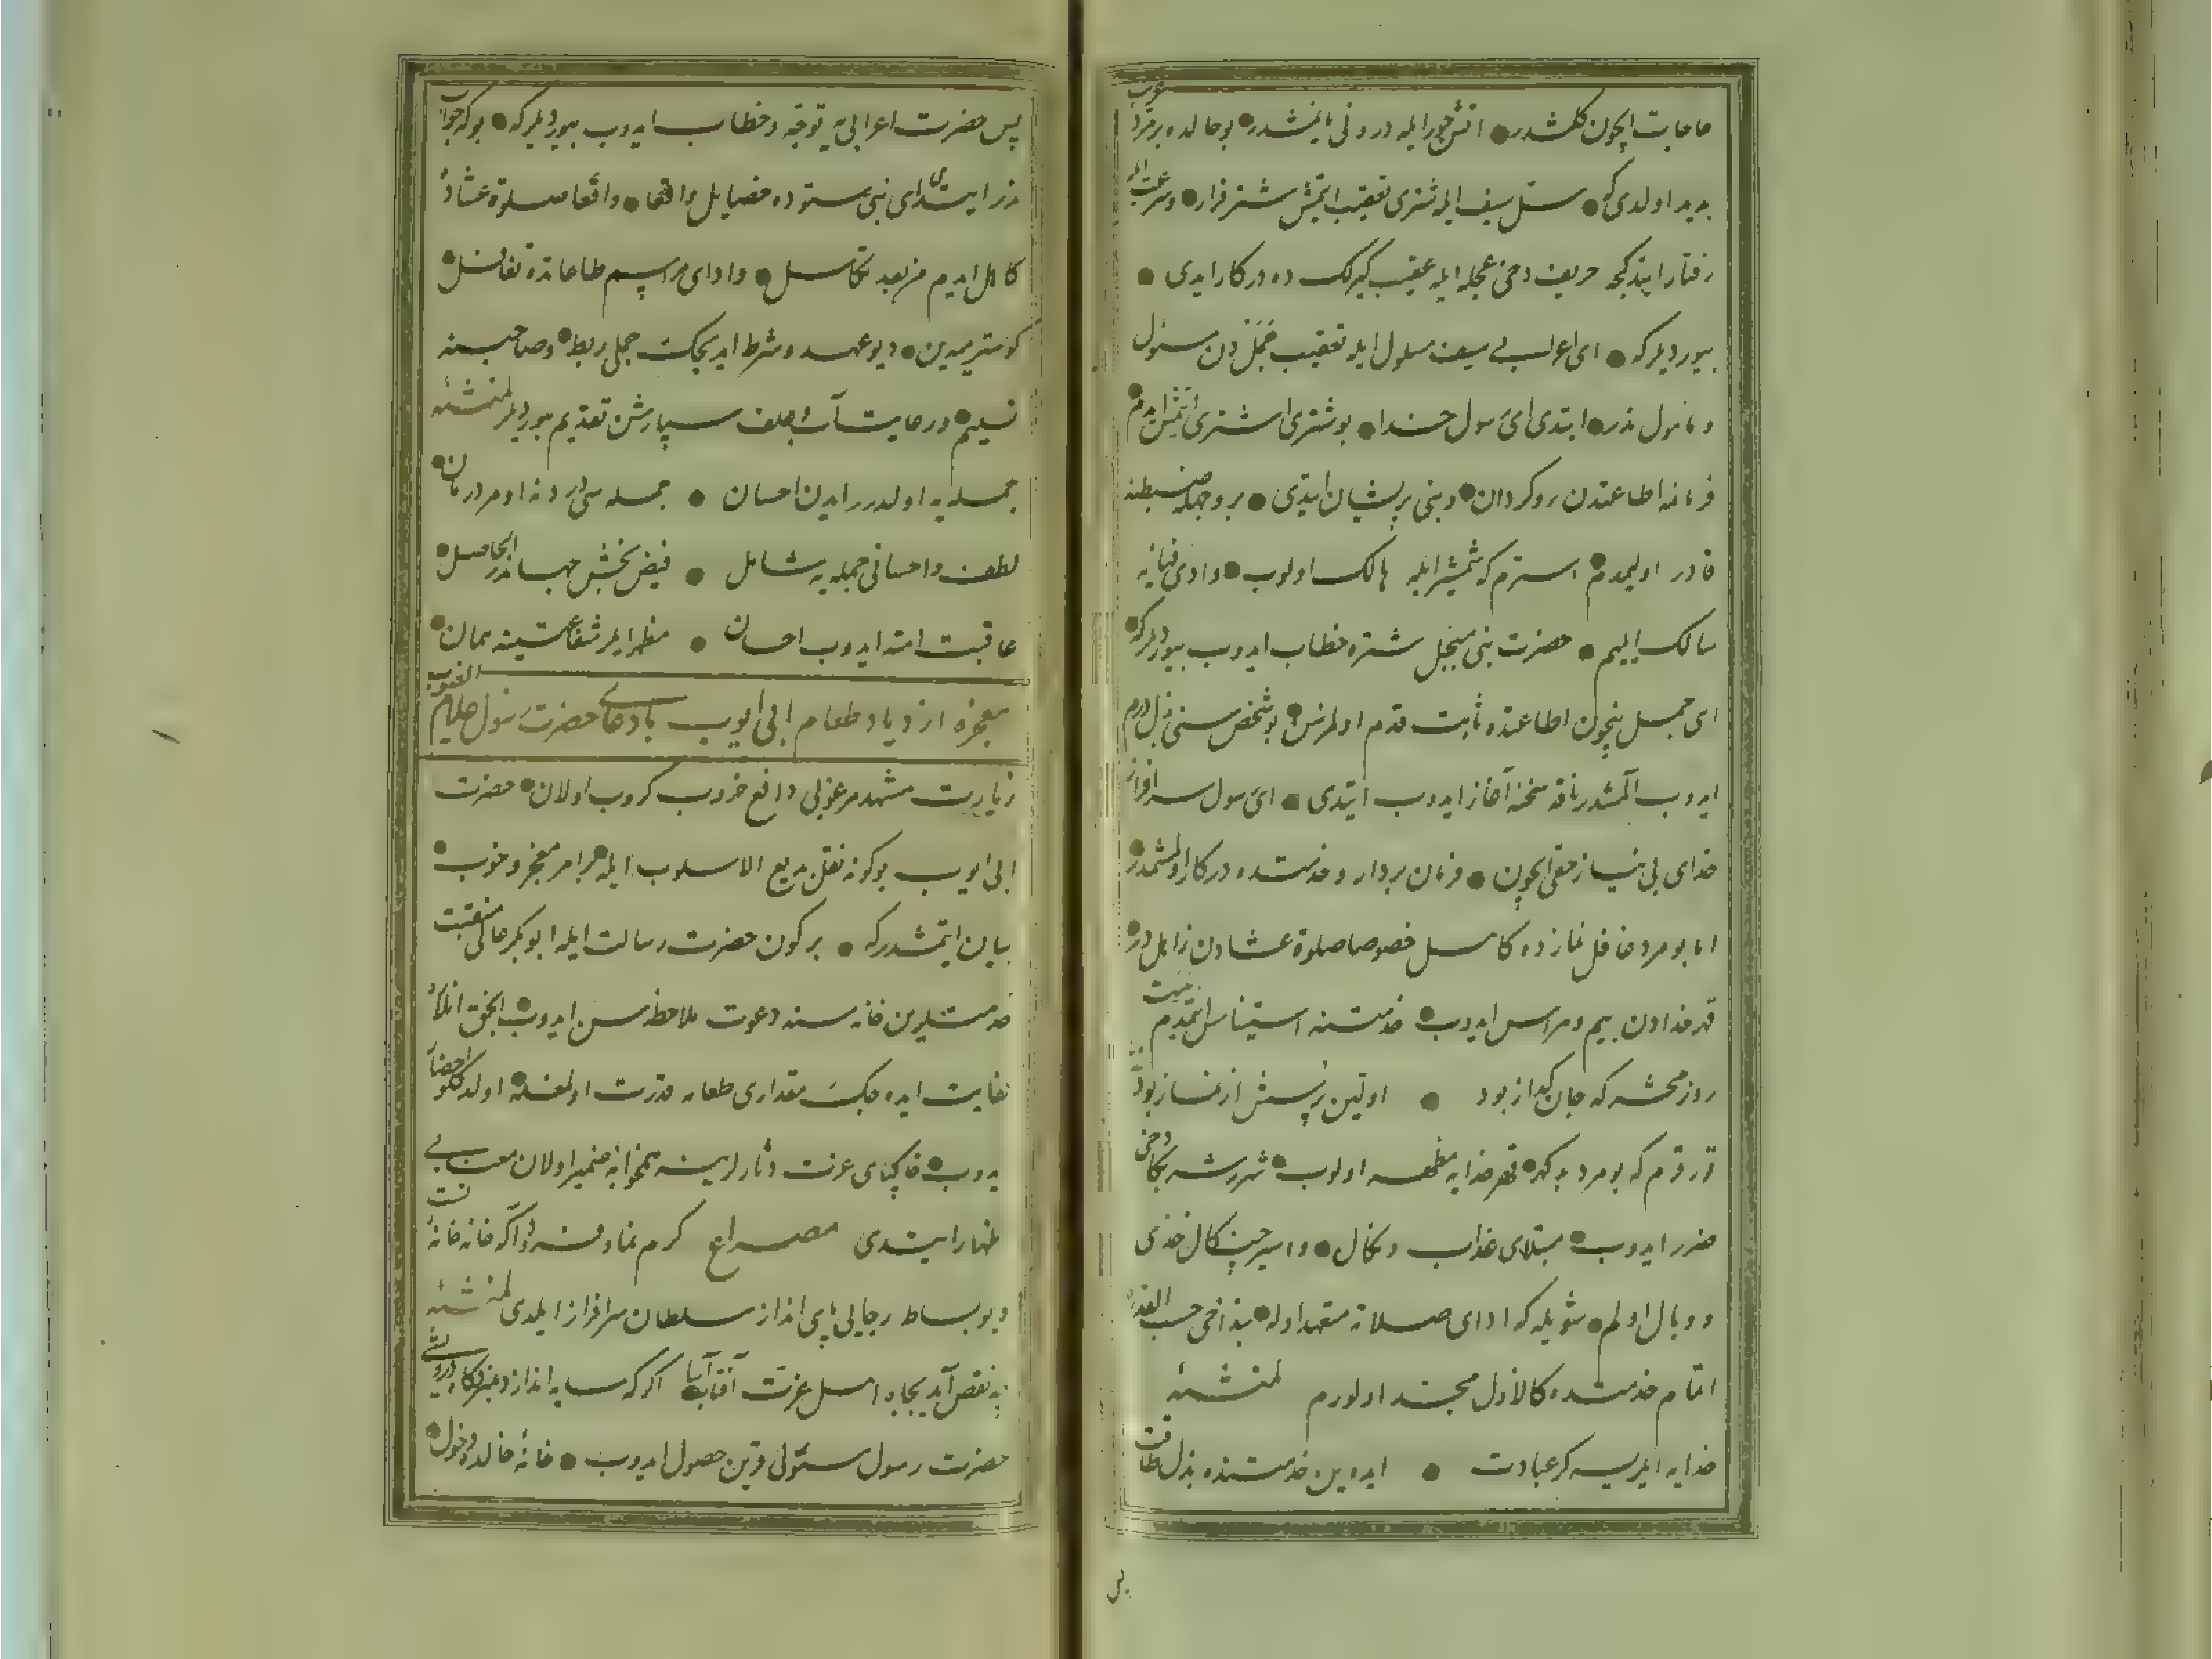 حاجات ایچون کلشدر اتش جور ایله درونی یانمشدر بو حالده بر مرد عرب
پدید اولدی که سلّ سیف ایله شتری تعقیب ایتمش شتر فرار و سرعت ایله
رفتار ایتدکجه حریف دخی عجله ایله عقیب کیرلک ده درکار ایدی
بیوردیلرکه ای اعرابی سیف مسلول ایله تعقیب جملدن مسئول
و مأمول ندر ایتدی ای رسول خدا بو شتری اشترا ایتمش ایدم
فرمانه اطاعتدن روکردان و بنی پریشان ایتدی بر وجهله ضبطنه
قادر اولیمدم استرم که شمشیر ایله هالک اولوب وادی فنایه
سالک ایلیم حضرت نبی مبجل شتره خطاب ایدوب بیوردیلرکه
ای جمل نیچون اطاعتده ثابت قدم اولمزسن بو شخص سنی بذل درم
ایدوب المشدر ناقه سخنه آغاز ایدوب ایتدی ای رسول سرافراز
خدای بی نیاز حقی ایچون فرمان بردار و خدمتده درکار اولمشمدر
اما بو مرد غافل نمازده کاسل خصوصا صلوة عشادن زائل در
قهر خدادن بیم و هراس ایدوب خدمتنه استیناس ایتمدم بیت
روز محشر که جان کداز بود اولین پرسش از نماز بود
قورقرم که بو مرد بدکهر قهر خدایه مظهر اولوب شررشر بکا دخی
ضرر ایدوب مبتلای عذاب و نکال و اسیر خزی
و وبال اولم شویله که ادای صلاته متعهد اوله بنداخی حسب القدره
اتمام خدمتده کالاول مجتهد اولورم لمنشئه
خدایه ایلریسه کر عبادت ایده یین خدمتنده بذل طاقت
پس
پس حضرت اعرابی یه توجه و خطاب ایدوب بیوردیلرکه بوکه جواب
ندر ایتدی ای نبی ستوده خصایل واقعا صلوة عشاده
کاهل ایدم من بعد تکاسل و ادای مراسم طاعاتده تغافل
کوسترمیه ین دیو عهد و شرط ایدیجک جملی ربط و صاحبنه
تسلیم و رعایت آب و علف سپارشن تقدیم بوردیلر لمنشئه
جمله یه اولدرر ایدن احسان جمله سی دردنه اومر درمان
لطف و احسانی جمله یه شامل فیض بخش جهاندر الحاصل
عاقبت امته ایدوب احسان مظهر ایلر شفاعتینه همان
معجزه ازدیاد طعام ابی ایوب بادعای حضرت رسول علام الغیوب
زیارت مشهد مرغوبی دافع ضروب کروب اولان حضرت
ابی ایوب بوکونه نقل بدیع الاسلوب ایله برامر معجز و خوب
بیان ایتمشدر که بر کون حضرت رسالت ایله ابو بکر عالی منقبت
خدمتلرین خانه سنه دعوت ملاحظه سن ایدوب الحق انلره
کفایت ایده جک مقداری طعامه قدرت اولمغله اولدکلو احضار
یدوب خاکپای عزت دثارلرینه همخوابه ضمیر اولان معنایی
ظهار ایتدی مصراع کرم نما و فرود آ که خانه خانه تست
دیو بساط رجایی پای انداز سلطان سرافراز ایلدی لمنشئه
چه نقص آید بجاه اصل عزت آفتاب آسا اکر که سایه اندازد
حضرت رسول مسئولی قرین حصول ایدوب خانه خالده دخول